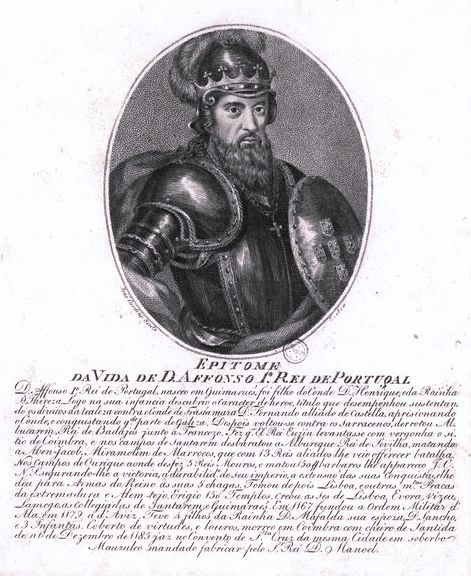 EPITOME
DA VIDA DE D. AFFONSO Iº. REI DE PORTUGAL
D. Affonso Iº. Rei de Portugal, nasceo em Guimaraẽs, foi filho do Conde D. Henrique, e da Rainha
D. Thereza. Logo na sua infancia descubrio o caracter de heroe, titulo que desempenhou sustentan
do os direitos da realeza contra o Conde de Trastamara D. Fernando alliado de Castella, aprisionando
o Conde, e conquistando gde. parte de Galiza. Depois voltou-se contra os sarracenos, derrotou Al
bucarem, Rei de Badajoz junto a Trancozo. Fez q. El Rei Eujuni levantasse com vergonha o si
tio de Coimbra, e nos campos de Santarem desbaratou a Albureque Rei de Sevilha, matando
a Aben-Jacob, Miramolim de Marrocos, que com 13 Reis aliados lhe veio offerecer batalha,
Nos Campos de Ourique aonde desfez 5 Reis Mouros, e matou lhe appareceo J. C.
N. S. segurando-lhe a victoria, a durabilidade de seu imperio, a extensaõ das suas Conquistas, lhe
deu para Armas do Reino as suas 5 chagas. Tomou depois Lisboa, e outras mtas. Praças
da extremadura e Alem-tejo. Erigio 150 Templos. Creou as ses de Lisboa, Evora, Vizeu,
Lamego, as collegiadas de Santarem, e Guimaraẽs. Em 1167 fundou a Ordem Militar d'
Ala, em 1179 a d'Aviz. Teve 4 filhos da Rainha D. Mafalda sua espoza, D. Sancho,
e 3 Infantas. Coberto de virtudes, e louros, morreo em Coimbra com cheiro de Santida
de a 6 de Dezembro de 1185 e jaz no Convento de Sta. Cruz da mesma Cidade em soberbo
Mauzuleo mandado fabricar pelo S. Rei D. Manoel.